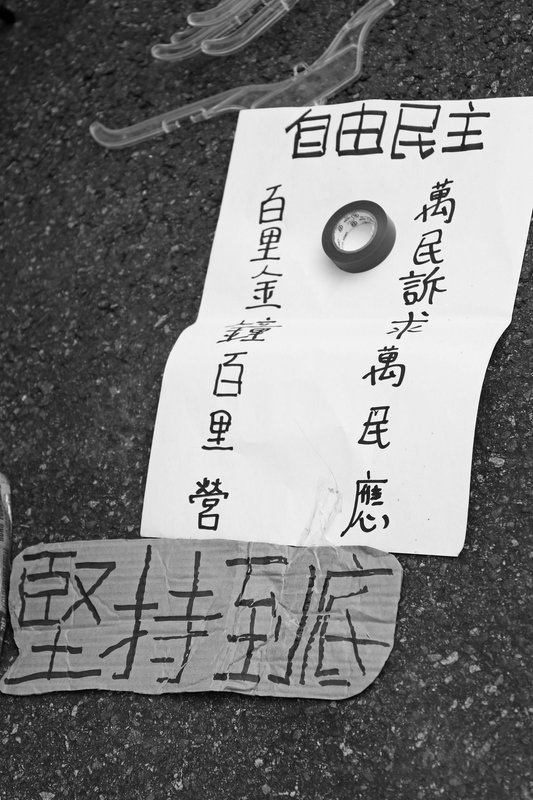 自由民主
萬民訴求萬民應
百里金鐘百里營
堅持到底